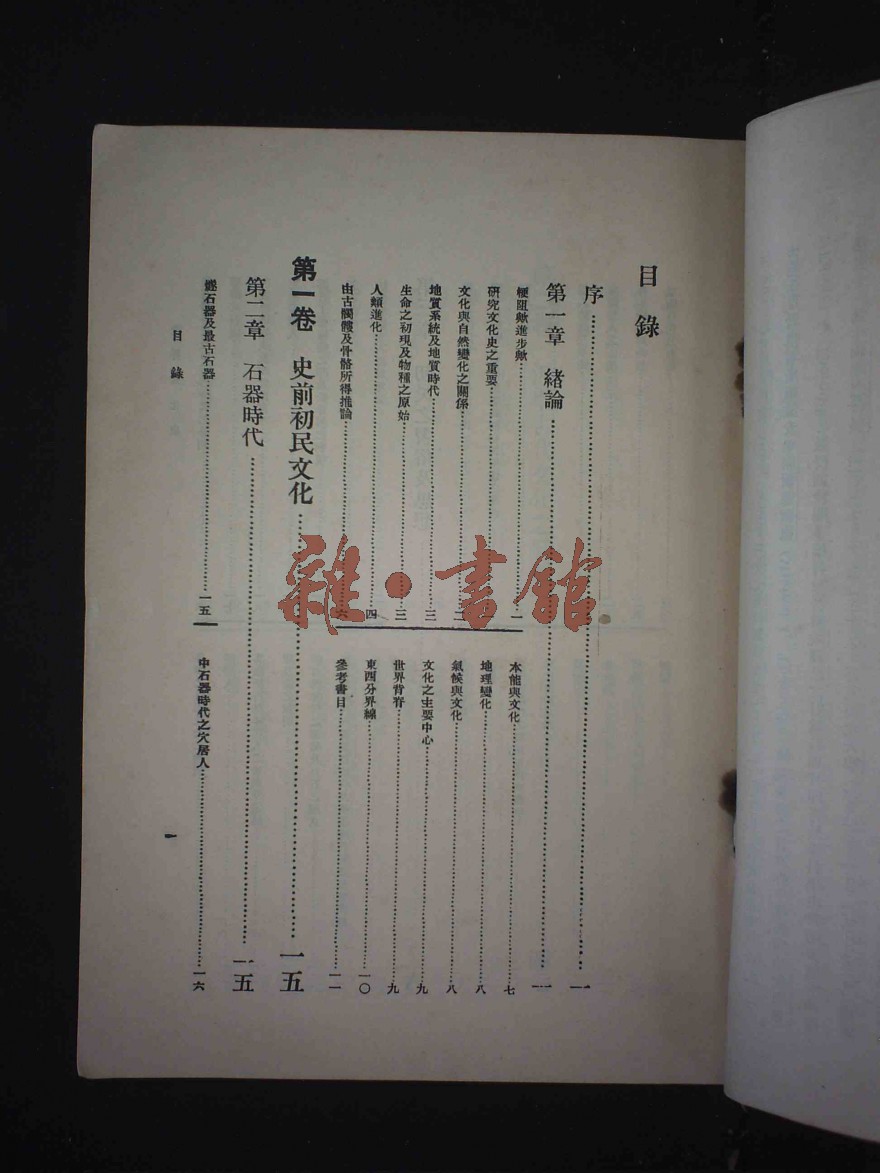 目錄
序……一
第一章 緒論……一
梗阻歟進步歟……一
研究文化史之重要……
文化與自然變化之關係……二
地質系統及地質時代……三
生命之初現及物種之原始……三
人類進化……四
由古髑髏及骨骼所得推論……六
本能與文化……七
地理變化……八
氣候與文化……八
文化之主要中心……九
世界背脊……九
東西分界線……一〇
參考書目……一一
第一卷 史前初民文化……一五
第二章 石器時代……一五
石器及最古石器……一五
中石器時代之穴居人……一六
目錄
一
雜·書館